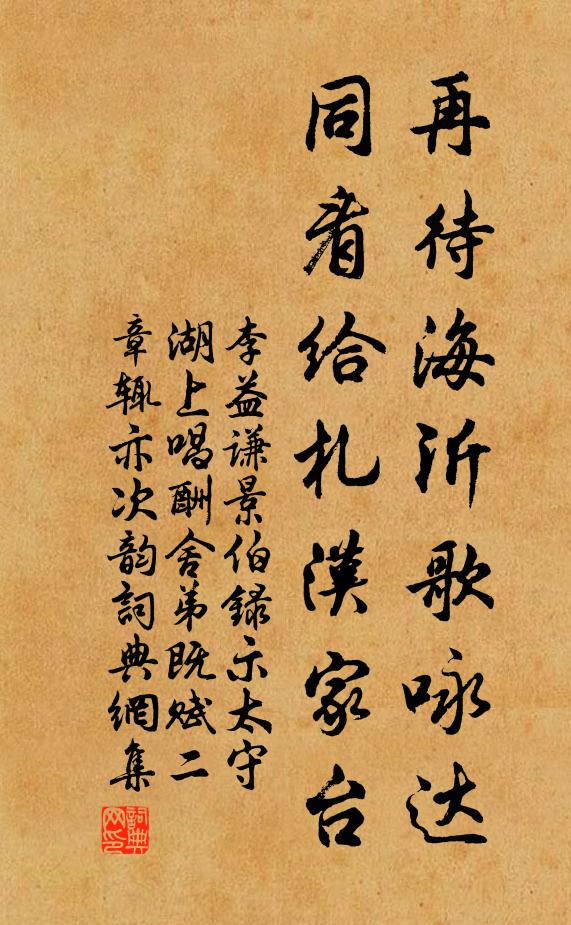 再待海沂歌咏达
同看给札漢家台
李益谦景伯録示太守
湖上唱酬舍弟既赋二
章辄亦次韵詞典網集
詞典网印